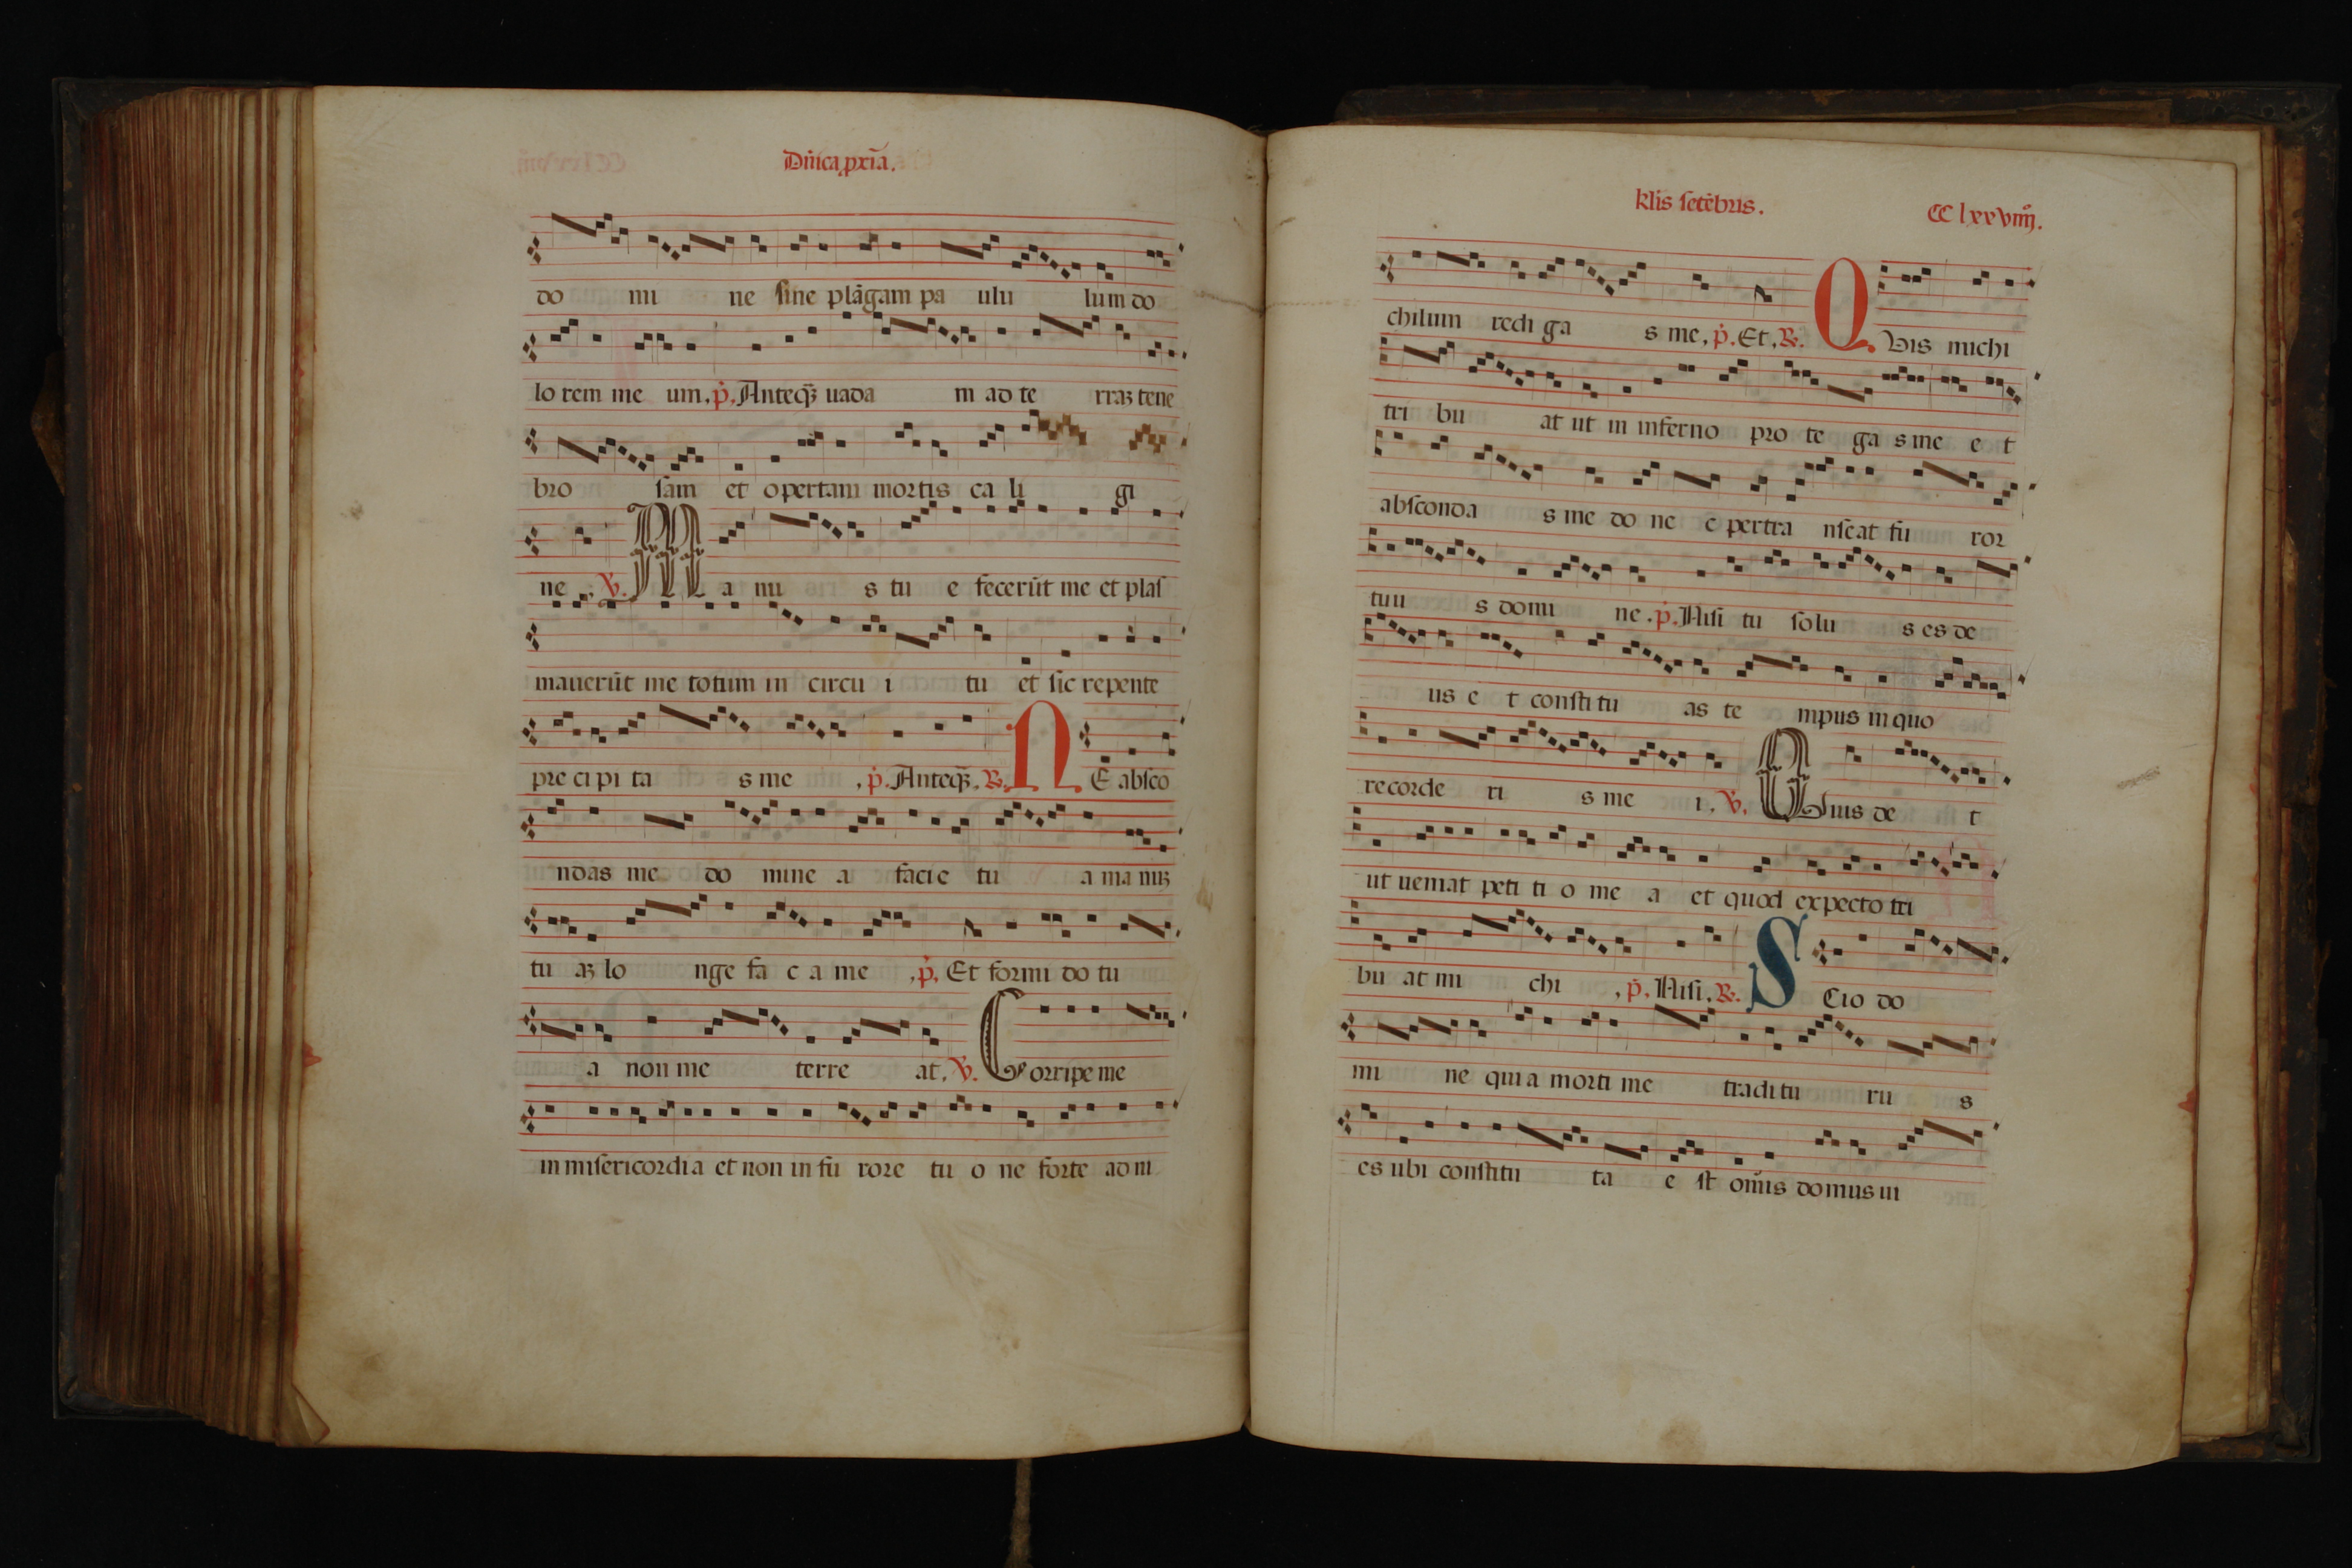 Dn̄ica p̱xīa.
do mi ne sine plāgam pa ulu lum do
lo rem me um. p̊. Anteq̄ȝ uada m ad te rraȝ tene
bro sam et opertam mortis ca li gi
ne. V̊. Ma nu s tu e fecerūt me et plas
mauerūt me totum in circu i tu et sic repente
pre ci pi ta s me . p̊. Anteq̄ȝ. R̊. NE absco
ndas me do mine a facie tu a ma nuȝ
tu aȝ lo nge fa c a me . p̊. Et formi do tu
a non me terre at. V̊. Corripe me
in misericordia et non in fu rore tu o ne forte ad ni
klis setēbris. CC lxxviiij.
chilum redi ga s me. p̊. Et. R̊. QVis michi
tri bu at ut in inferno pro te ga s me e t
absconda s me do ne c pertra nseat fu ror
tuu s domi ne. p̊. Nisi tu solu s es de
us e t constitu as te mpus in quo
recorde ri s me i. V̊. Quis de t
ut ueniat peti ti o me a et quod expecto tri
bu at mi chi . p̊. Nisi. R̊. SCio do
mi ne quia morti me traditu ru s
es ubi constitu ta e st om̄is domus ui